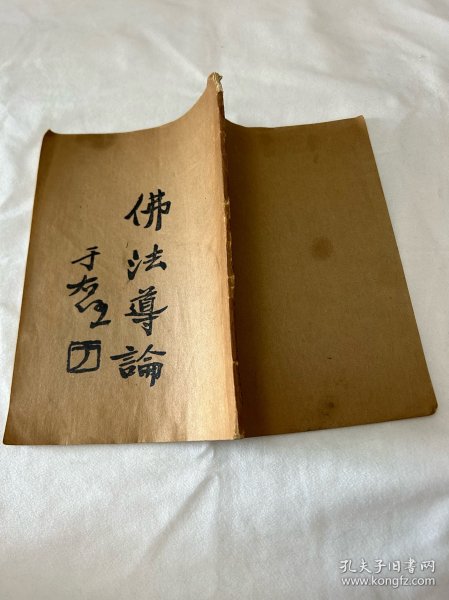 佛法導論
于右任
孔夫子旧书网
www.kongfz.com